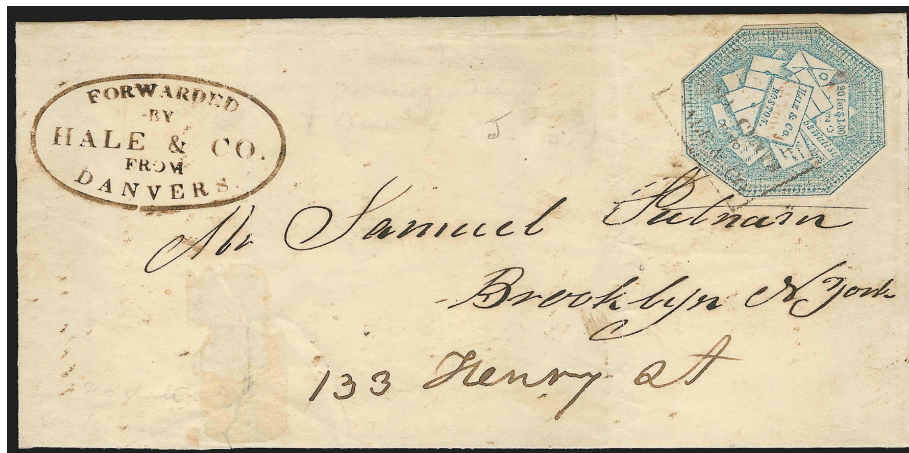 FORWARDED
BY
HALE & CO.
FROM
DANVERS.
20 for $1.00
HALE & CO.
BOSTON
Mr Samuel Putnam
Brooklyn N York
133 Henry St